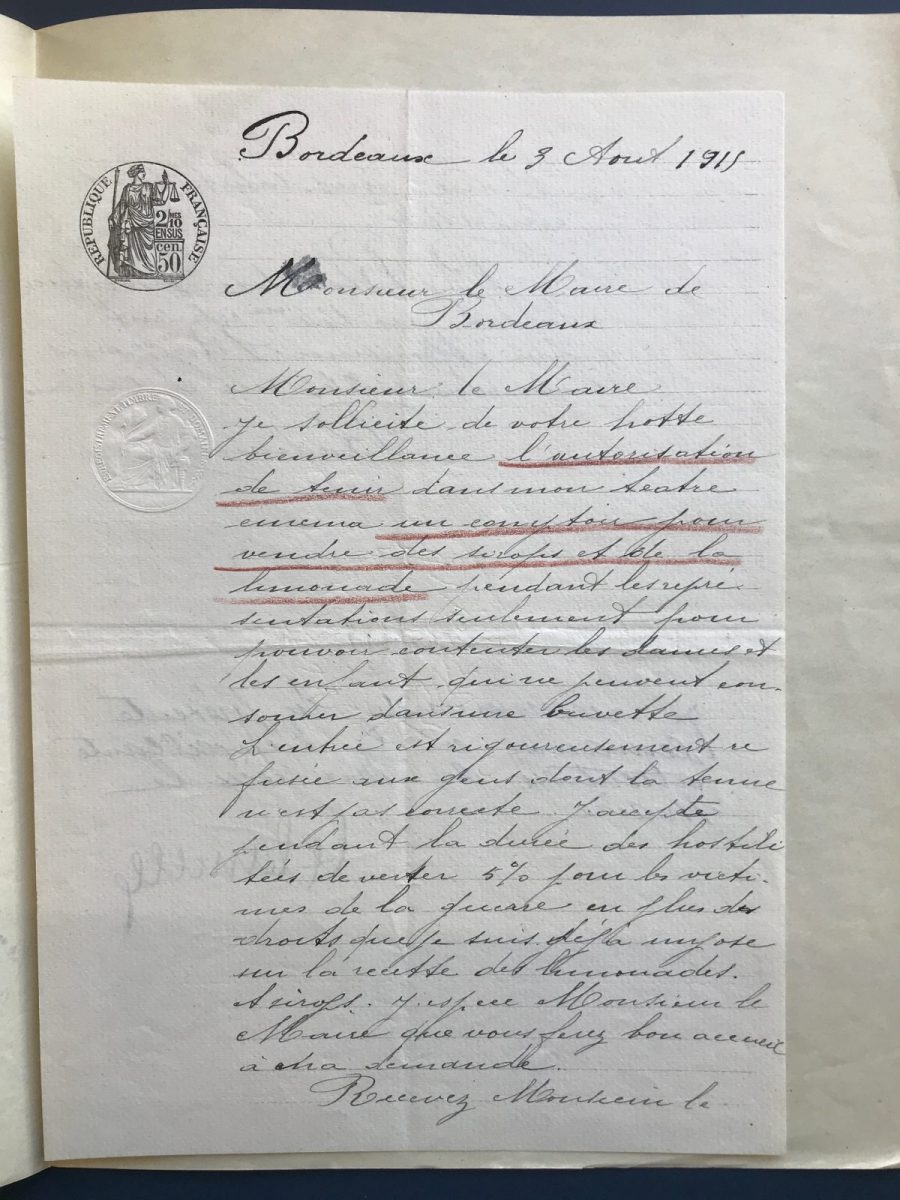 Bordeaux le 3 Aout 1915
RÉPUBLIQUE FRANÇAISE
2/10 MES
EN SUS
cen.
50
Monsieur le Maire de
Bordeaux
Monsieur le Maire
Je sollicite de votre hotte
bienveillance l'autorisation
de tenir dans mon teatre
cinema un comptoir pour
vendre des sirops et de la
limonade pendant les repré
sentations seulement pour
pouvoir contenter les dames et
les enfant qui ne peuvent con-
somer dans une buvette
L'entrée est rigoureusement re
fusée aux gens dont la tenue
n'est pas correcte J'accepte
pendant la durée des hostili
tées de verser 5% pour les victi-
mes de la guerre en plus des
droits que je suis déja imposé
sur la recette des limonades.
et sirops. J'espere Monsieur le
Maire que vous ferez bon accueil
à ma demande.
Recevez Monsieur le